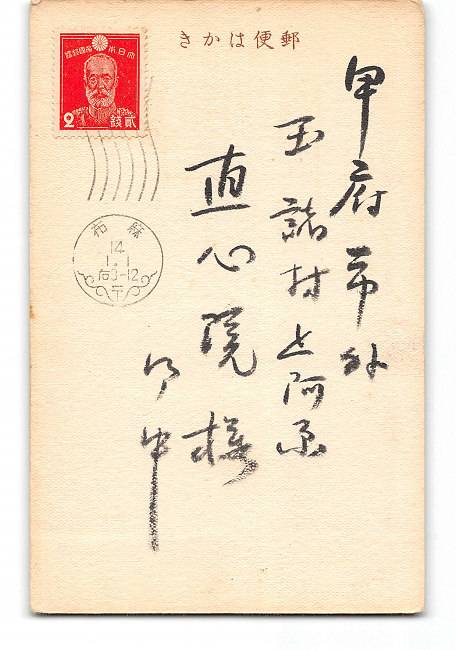 きかは便郵
甲府市外
玉諸村上阿原
直心院様
御中
大日本帝國郵便
2
貳錢
布麻
14
1.1
后3-12
〒